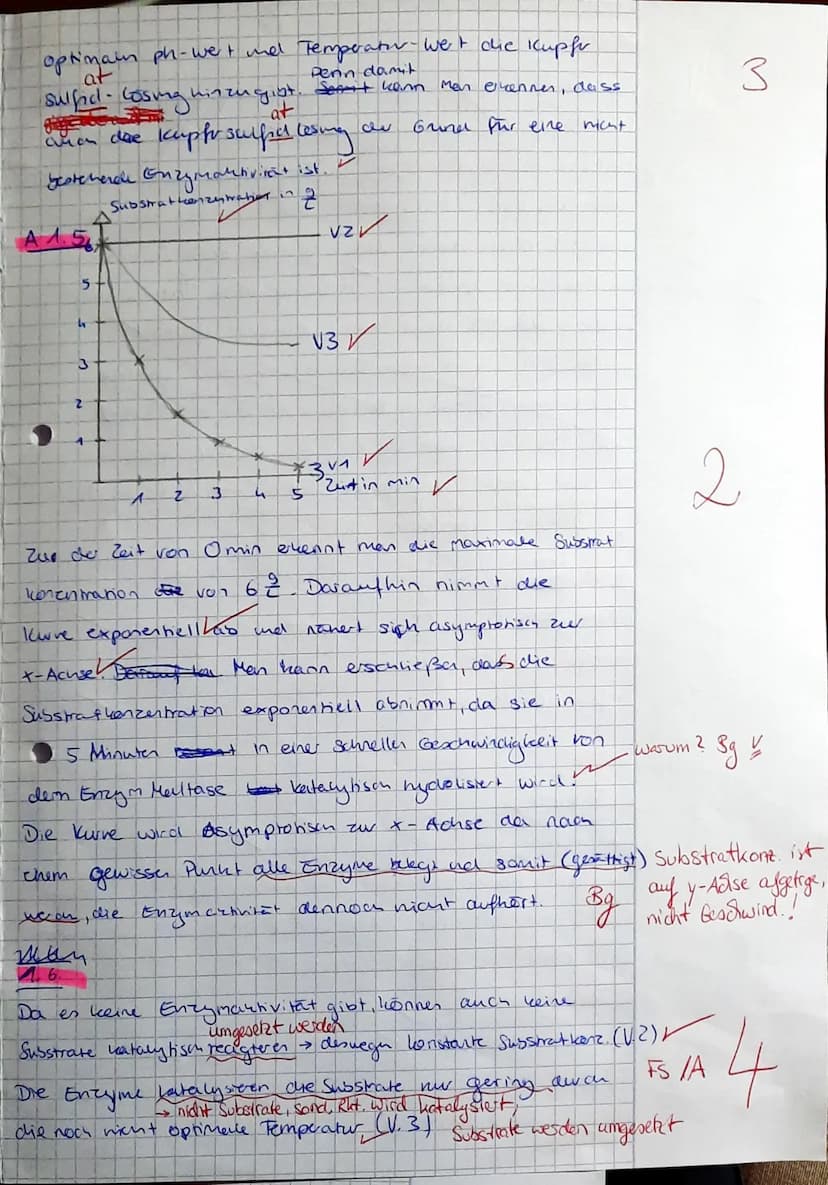 optimalen ph-Wert und Temperatur-Wert die Kupfer
at
sulfid-Lösung hinzugibt. Denn damit kann man erkennen, dass
at
auch die Kupfersulfid lösung der Grund für eine nicht
bestehende Enzymaktivität ist.
3
Substratkonzentration in g/L
A 1.5
V2
6
5
4
3
2
1
V3
V1
1 2 3 4 5 Zeit in min
2
Zur der Zeit von 0 min erkennt man die maximale Substrat
konzentration von 6 g/L. Daraufhin nimmt die
Kurve exponentiell ab und nähert sich asymptotisch zur
x-Achse. Man kann erschließen, dass die
Substratkonzentration exponentiell abnimmt, da sie in
5 Minuten in einer schnellen Geschwindigkeit von
warum? Bg
dem Enzym Maltase katalytisch hydrolisiert wird.
Die Kurve wird Asymptotisch zur x-Achse da nach
einem gewissen Punkt alle Enzyme belegt und somit (gesättigt)
werden, die Enzymaktivität dennoch nicht aufhört.
Bg
Substratkonz. ist
auf y-Achse aufgetrage,
nicht Geschwind.!
1.6.
Da es keine Enzymaktivität gibt, können auch keine
umgesetzt werden
Substrate katalytisch reagieren → deswegen konstante Substratkonz. (V.2)
Die Enzyme katalysieren die Substrate nur gering durch
FS /A 4
→ nicht Substrate, sond. Rkt. wird katalysiert,
die noch nicht optimale Temperatur (V.3)
Substrate werden umgesetzt